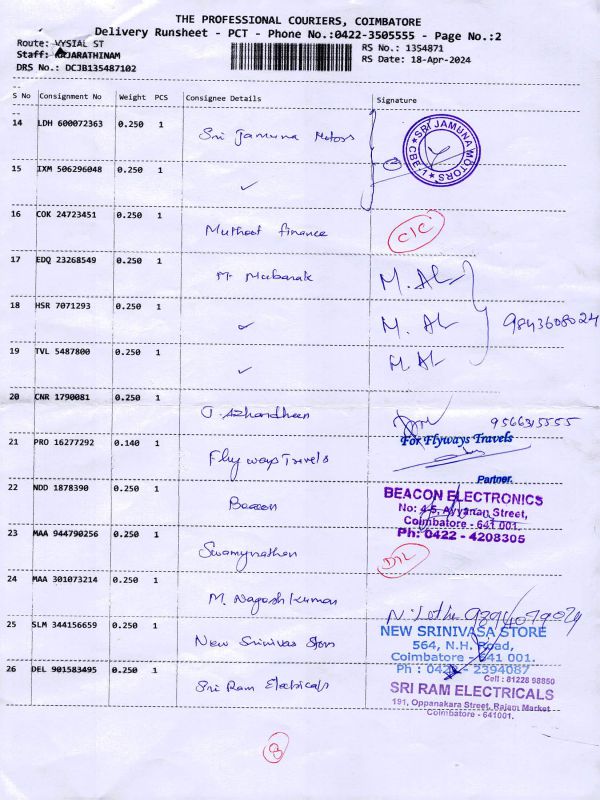 THE PROFESSIONAL COURIERS, COIMBATORE
Delivery Runsheet - PCT - Phone No.:0422-3505555 - Page No.:2
Route: VYSIAL ST
RS No.: 1354871
Staff: GUJARATHINAM
RS Date: 18-Apr-2024
DRS No.: DCJB135487102
S No Consignment No Weight PCS Consignee Details Signature
14 LDH 600072363 0.250 1 Sri Jamuna Motors
SRI JAMUNA MOTORS CBE-1
15 IXM 506296048 0.250 1 ✓
16 COK 24723451 0.250 1 Muthoot finance C/C
17 EDQ 23268549 0.250 1 M. Mubarak M. AL
18 HSR 7071293 0.250 1 ✓ M. AL 9843608024
19 TVL 5487800 0.250 1 ✓ M. AL
20 CNR 1790081 0.250 1 9566315555
21 PRO 16277292 0.140 1 Fly ways Travels For Flyways Travels
Partner.
22 NDD 1878390 0.250 1 Beacon BEACON ELECTRONICS
No: 4-5, Ayyanan Street,
Coimbatore - 641 001.
Ph: 0422 - 4208305
23 MAA 944790256 0.250 1 Swamynathan D/L
24 MAA 301073214 0.250 1 M. Nagesh Kumar
25 SLM 344156659 0.250 1 New Srinivas Stors NEW SRINIVASA STORE
564, N.H. Road,
Coimbatore - 641 001.
Ph : 0422 - 2394087
26 DEL 901583495 0.250 1 Sri Ram Electricals Cell : 81228 98850
SRI RAM ELECTRICALS
191, Oppanakara Street, Rajam Market
Coimbatore - 641001.